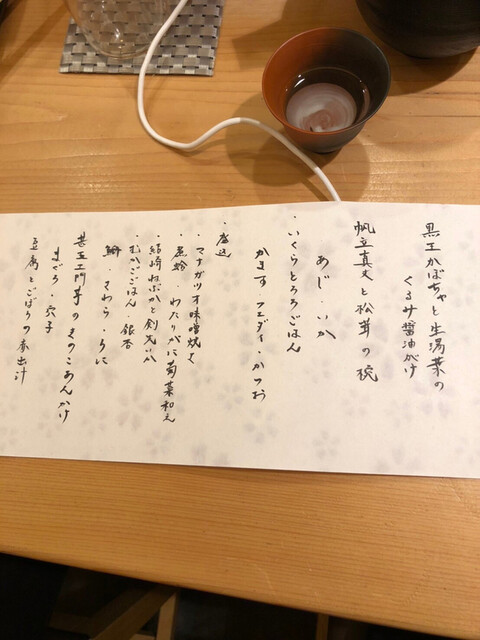 黒王かぼちゃと生湯葉の
くるみ醤油がけ
帆立真丈と松茸の椀
あじ・いか
・いくらとろろごはん
かます フエダイ・かつお
・盛込
・マナガツオ味噌焼き
・蒸蛤・わたりがに菊菜和え
・結崎ねぶかと剣先いか
・むかごごはん・銀杏
鰤・さわら・うに
甚五右ェ門芋のきのこあんかけ
まぐろ・穴子
豆腐とごぼうの赤出汁